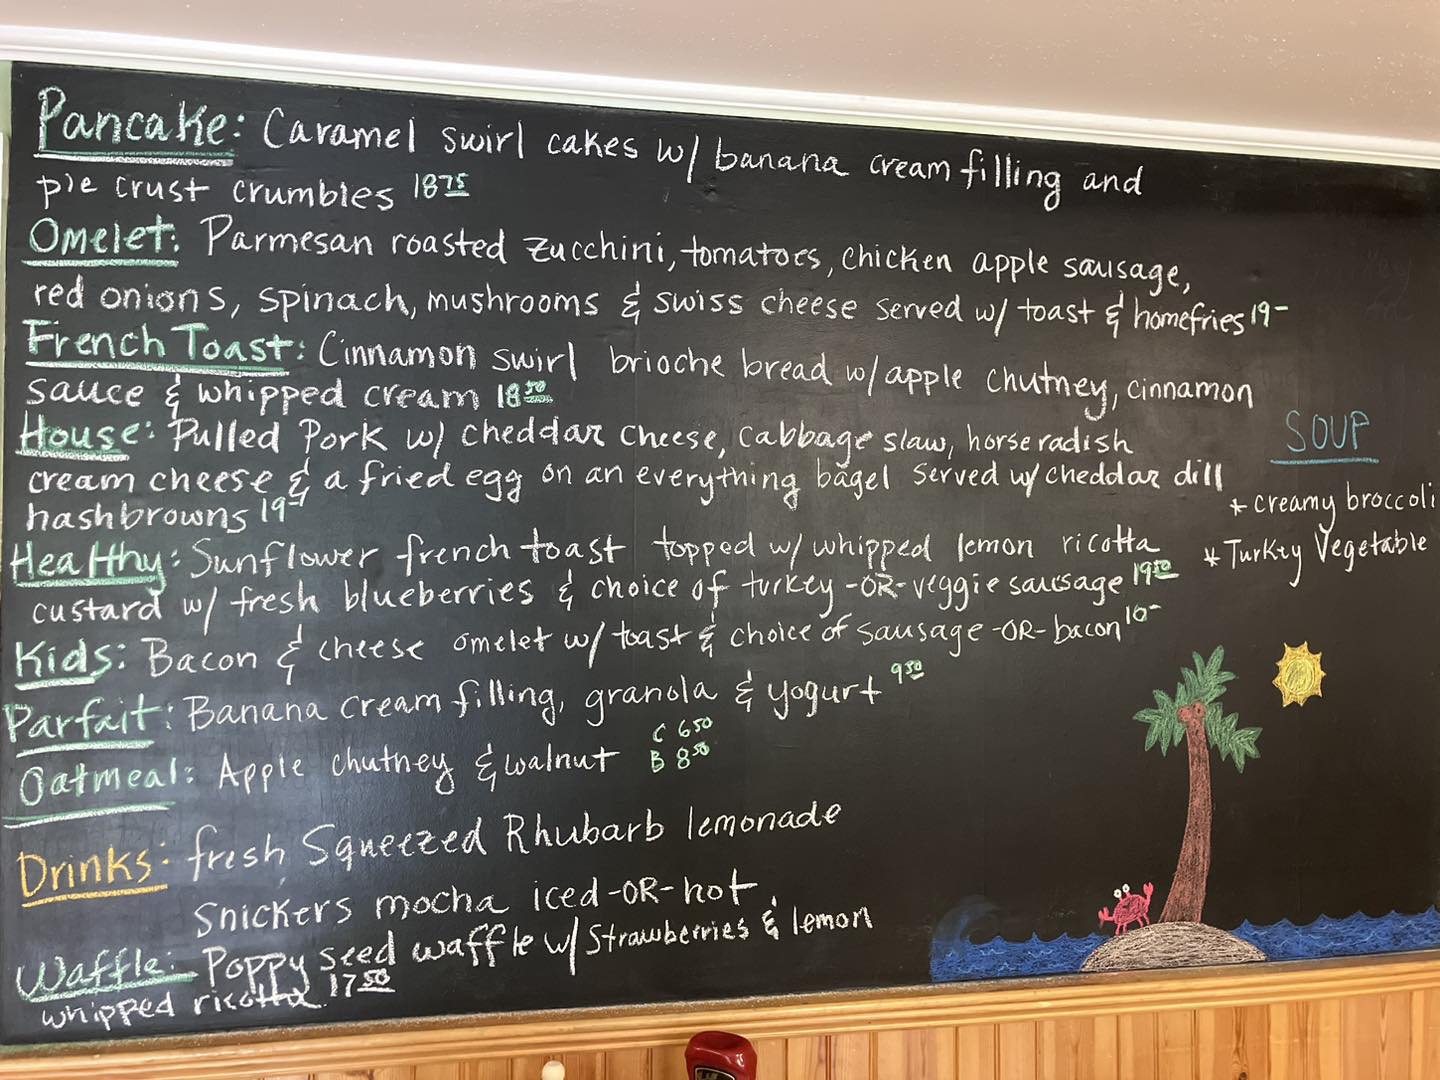 Pancake: Caramel swirl cakes w/ banana cream filling and
pie crust crumbles 18 75
Omelet: Parmesan roasted zucchini, tomatoes, chicken apple sausage,
red onions, spinach, mushrooms & swiss cheese served w/ toast & homefries 19-
French Toast: Cinnamon swirl brioche bread w/ apple chutney, cinnamon
sauce & whipped cream 18 50
House: Pulled Pork w/ cheddar cheese, cabbage slaw, horseradish
cream cheese & a fried egg on an everything bagel served w/ cheddar dill
hashbrowns 19-
Healthy: Sunflower french toast topped w/ whipped lemon ricotta
custard w/ fresh blueberries & choice of turkey -OR- veggie sausage 19 50
Kids: Bacon & cheese omelet w/ toast & choice of sausage -OR- bacon 10-
Parfait: Banana cream filling, granola & yogurt 9 50
Oatmeal: Apple chutney & walnut C 6 50
B 8 50
Drinks: fresh Squeezed Rhubarb lemonade
Snickers mocha iced -OR- hot
Waffle: Poppy seed waffle w/ Strawberries & lemon
whipped ricotta. 17 50
SOUP
* creamy broccoli
* Turkey Vegetable